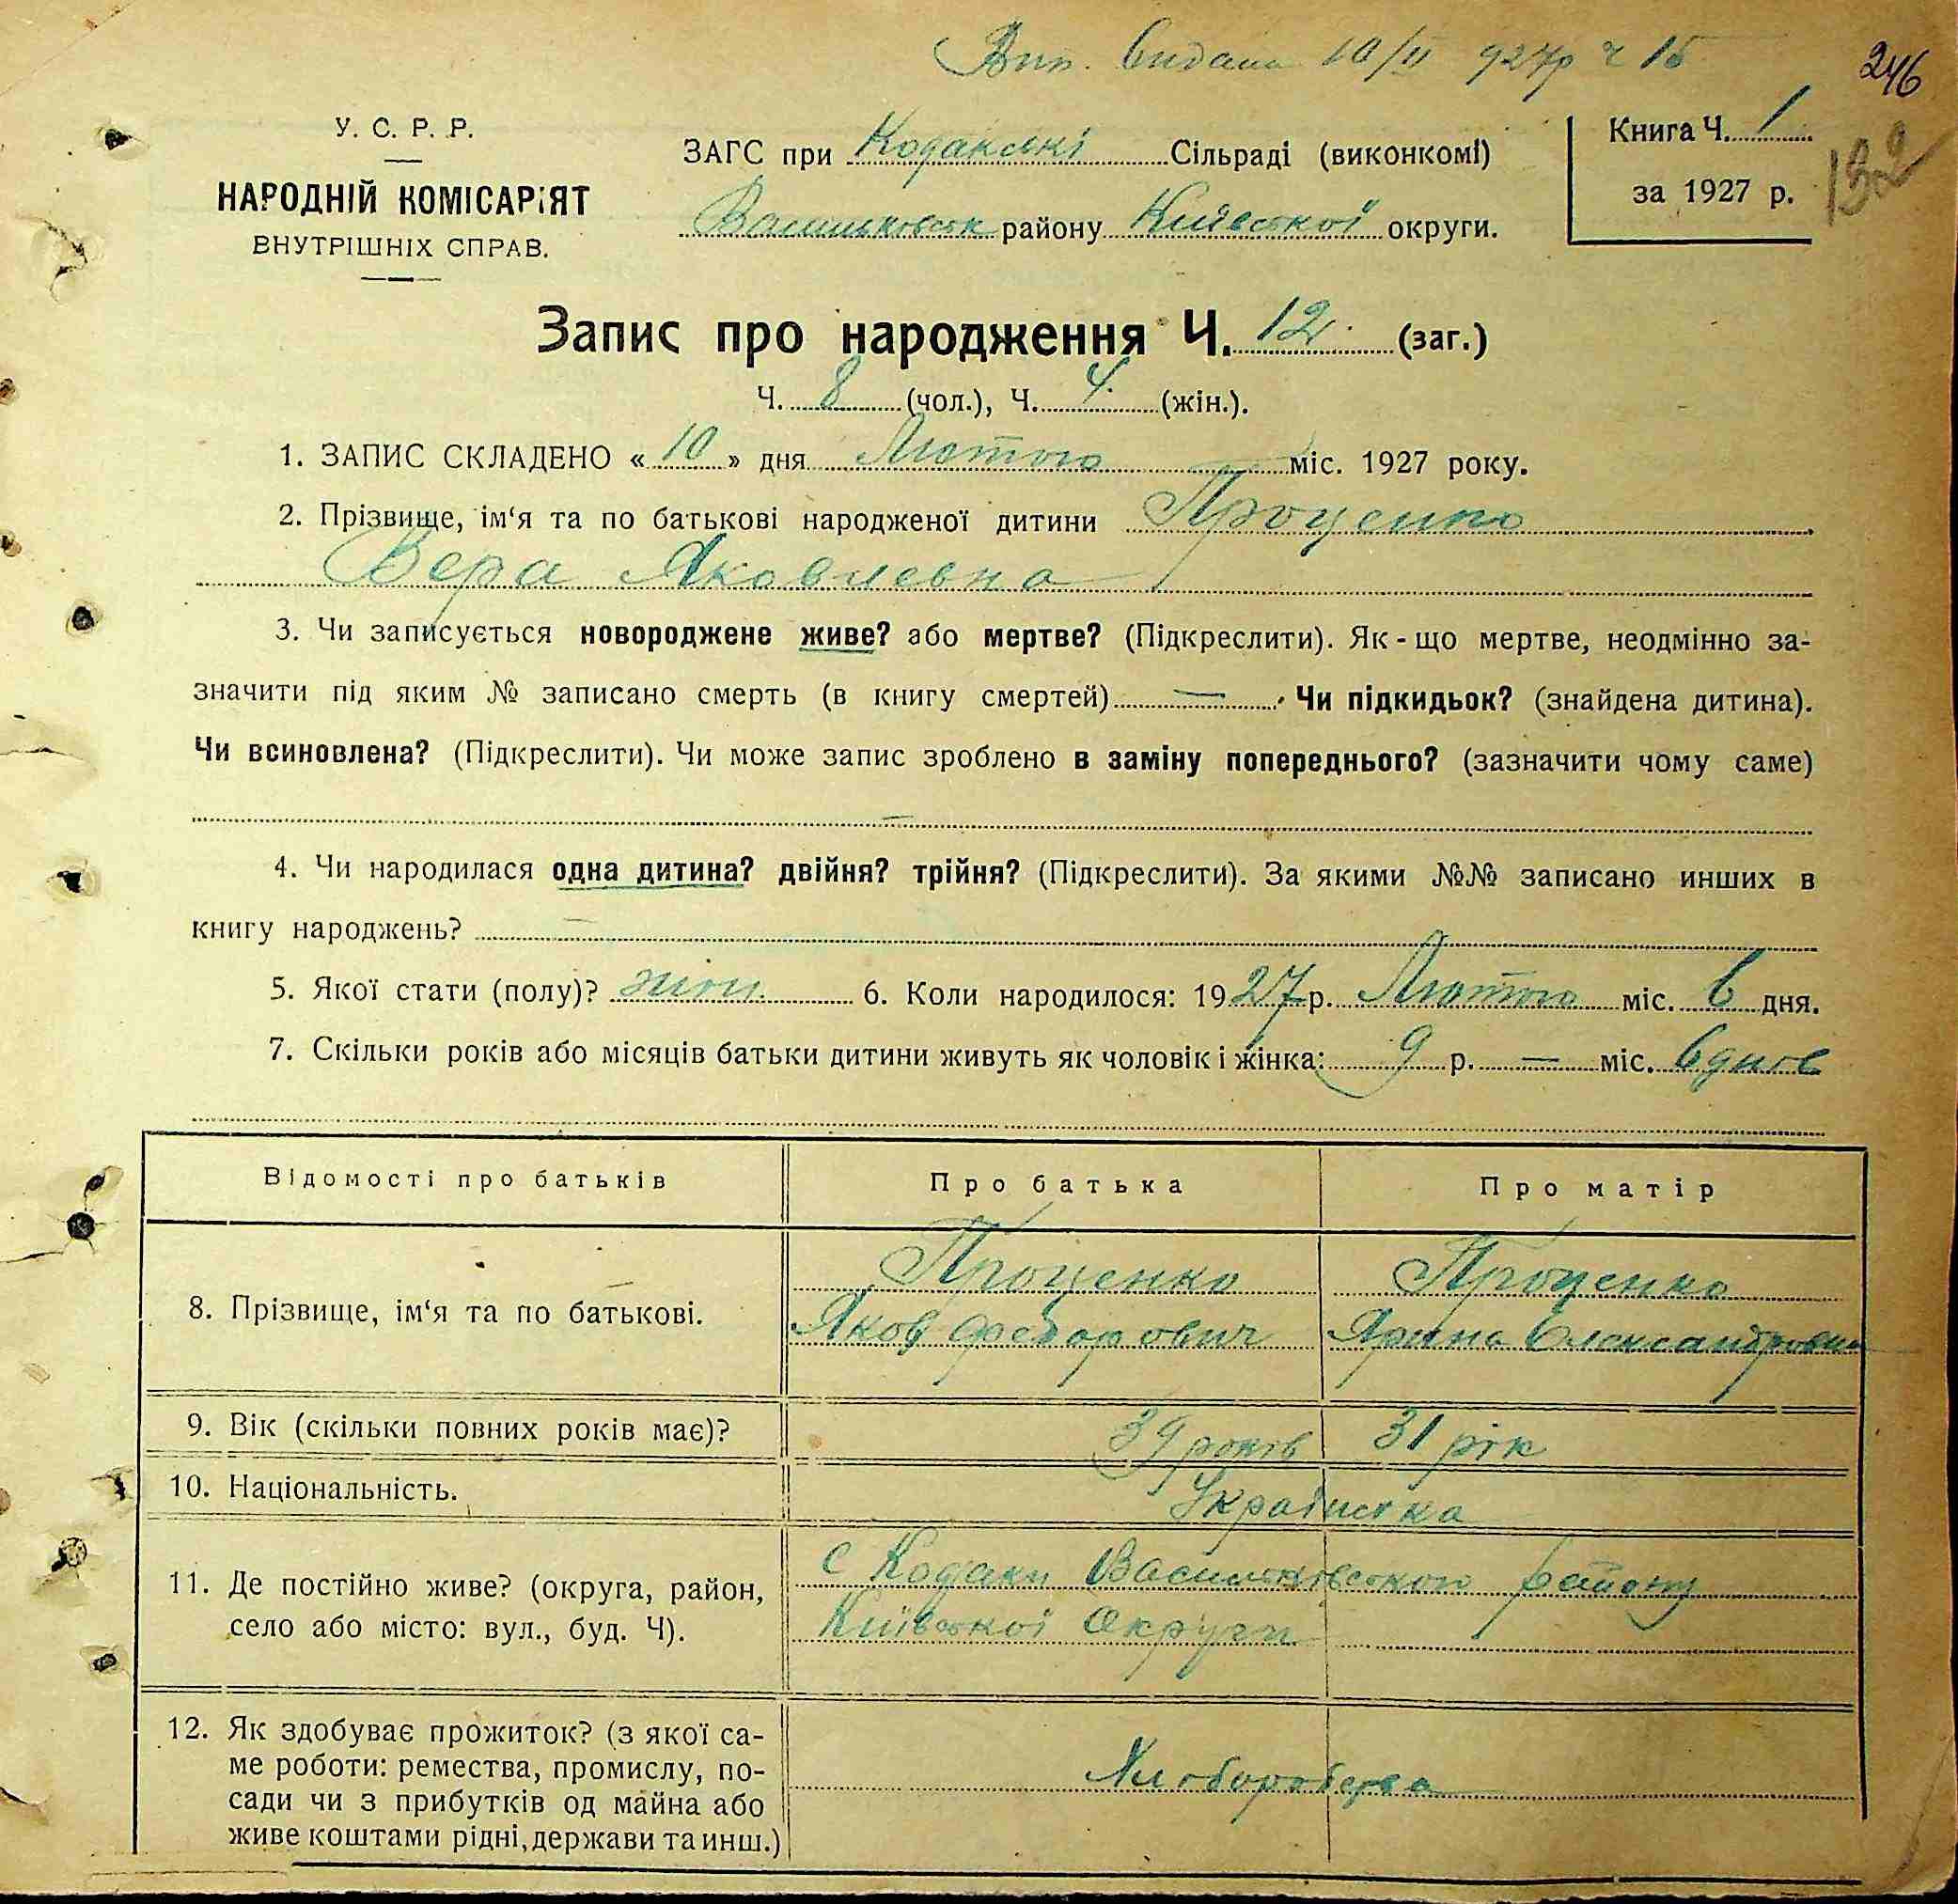 Вип. видана 10/II 927р ч 15
246
У. С. Р. Р.
НАРОДНІЙ КОМІСАРІЯТ
ВНУТРІШНІХ СПРАВ.
ЗАГС при Кодакські Сільраді (виконкомі)
Васильковськ району Київської округи.
Книга Ч. 1
за 1927 р.
132
Запис про народження Ч. 12. (заг.)
Ч. 8 (чол.), Ч. 4. (жін.).
1. ЗАПИС СКЛАДЕНО « 10 » дня Лютого міс. 1927 року.
2. Прізвище, ім‘я та по батькові народженої дитини Проценко
Вера Яковлевна
3. Чи записується новороджене живе? або мертве? (Підкреслити). Як-що мертве, неодмінно за-
значити під яким № записано смерть (в книгу смертей) — Чи підкидьок? (знайдена дитина).
Чи всиновлена? (Підкреслити). Чи може запис зроблено в заміну попереднього? (зазначити чому саме)
—
4. Чи народилася одна дитина? двійня? трійня? (Підкреслити). За якими №№ записано инших в
книгу народжень? —
5. Якої стати (полу)? жін. 6. Коли народилося: 1927 р. Лютого міс. 6 дня.
7. Скільки років або місяців батьки дитини живуть як чоловік і жінка: 9 р. — міс. 6 днів
Відомості про батьків Про батька Про матір
8. Прізвище, ім‘я та по батькові. Проценко Проценко
Яков Федорович Ярина Олександровна
9. Вік (скільки повних років має)? 39 років 31 рік
10. Національність. Українська
11. Де постійно живе? (округа, район, с Кодаки Васильківського району
село або місто: вул., буд. Ч). Київської Округи
12. Як здобуває прожиток? (з якої са-
ме роботи: ремества, промислу, по-
сади чи з прибутків од майна або
живе коштами рідні, держави та инш.) Хлоборобства